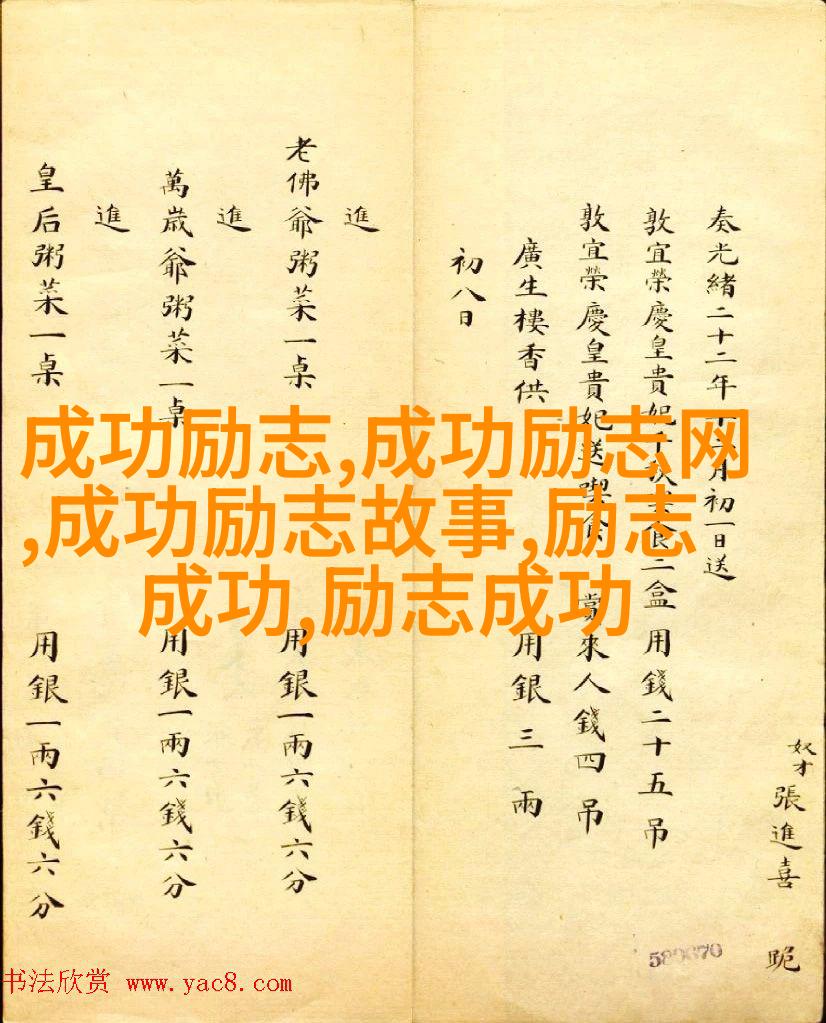 奴才張進喜 跪
奏光緒二十二年月初一日送
敦宜榮慶皇貴妃食二盒 用錢二十五吊
敦宜榮慶皇貴妃送喫食 賞來人錢四吊
廣生樓香供 用銀三兩
初八日
進
老佛爺粥菜一桌 用銀一兩六錢六分
進
萬歲爺粥菜一桌 用銀一兩六錢六分
進
皇后粥菜一桌 用銀一兩六錢六分
成功励志,成功励志网
,成功励志故事,励志
成功,励志成功
书法欣赏 www.yac8.com